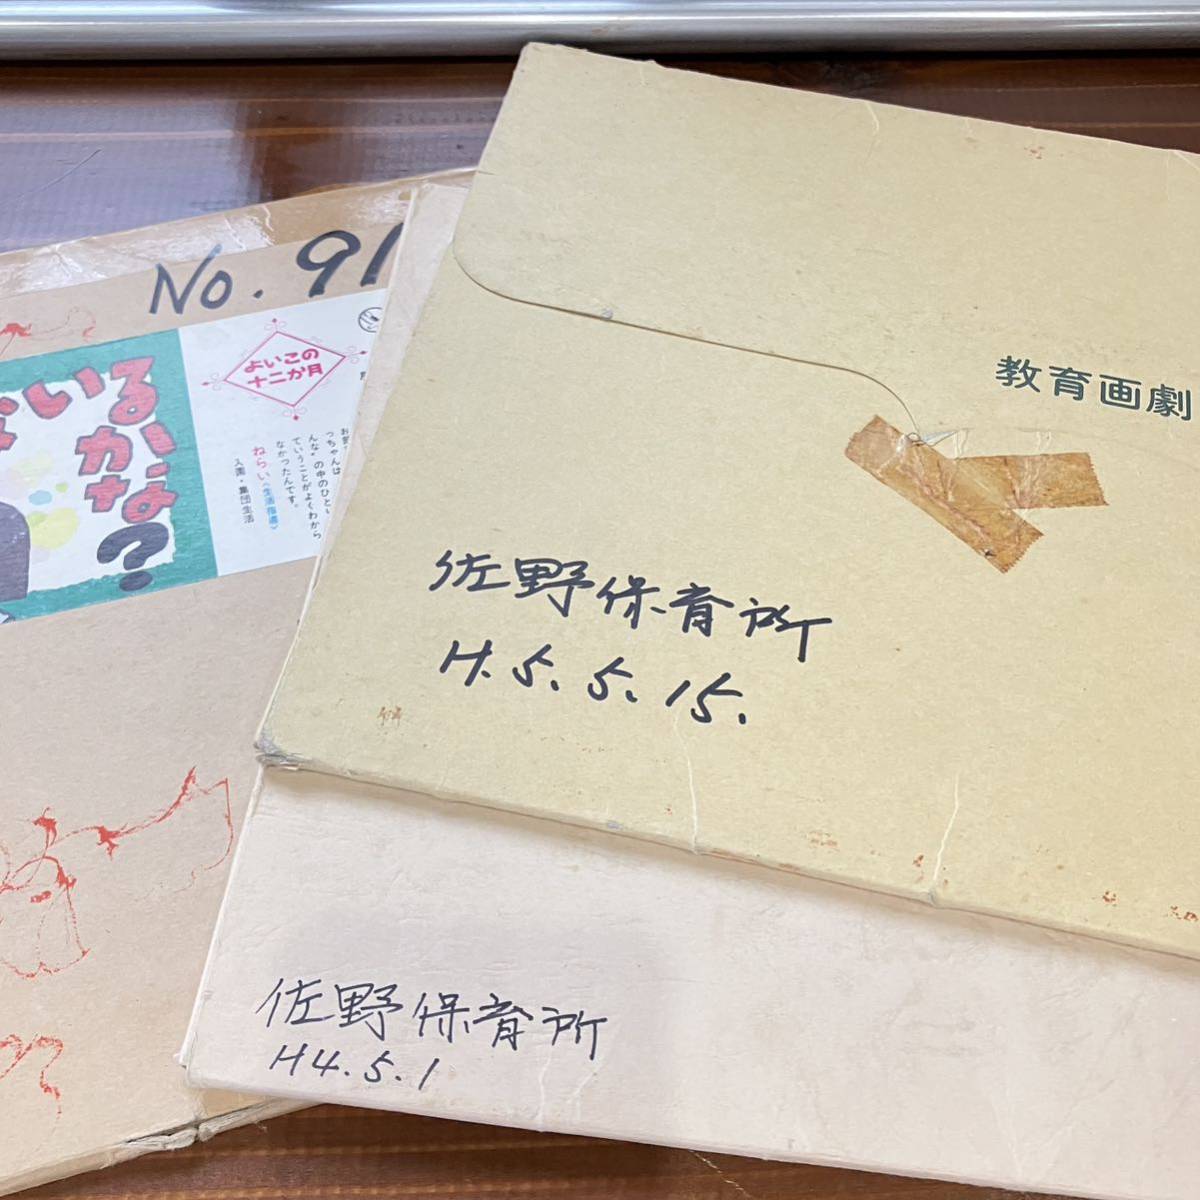 No. 91
いるかな?
よいこの
十二か月
っちゃんは
んな"の中のひと
ていうことがよくわから
なかったんです。
ねらい〈生活指導〉
入園・集団生活
教育画劇
佐野保育所
H.5.5.15.
佐野保育所
H4.5.1